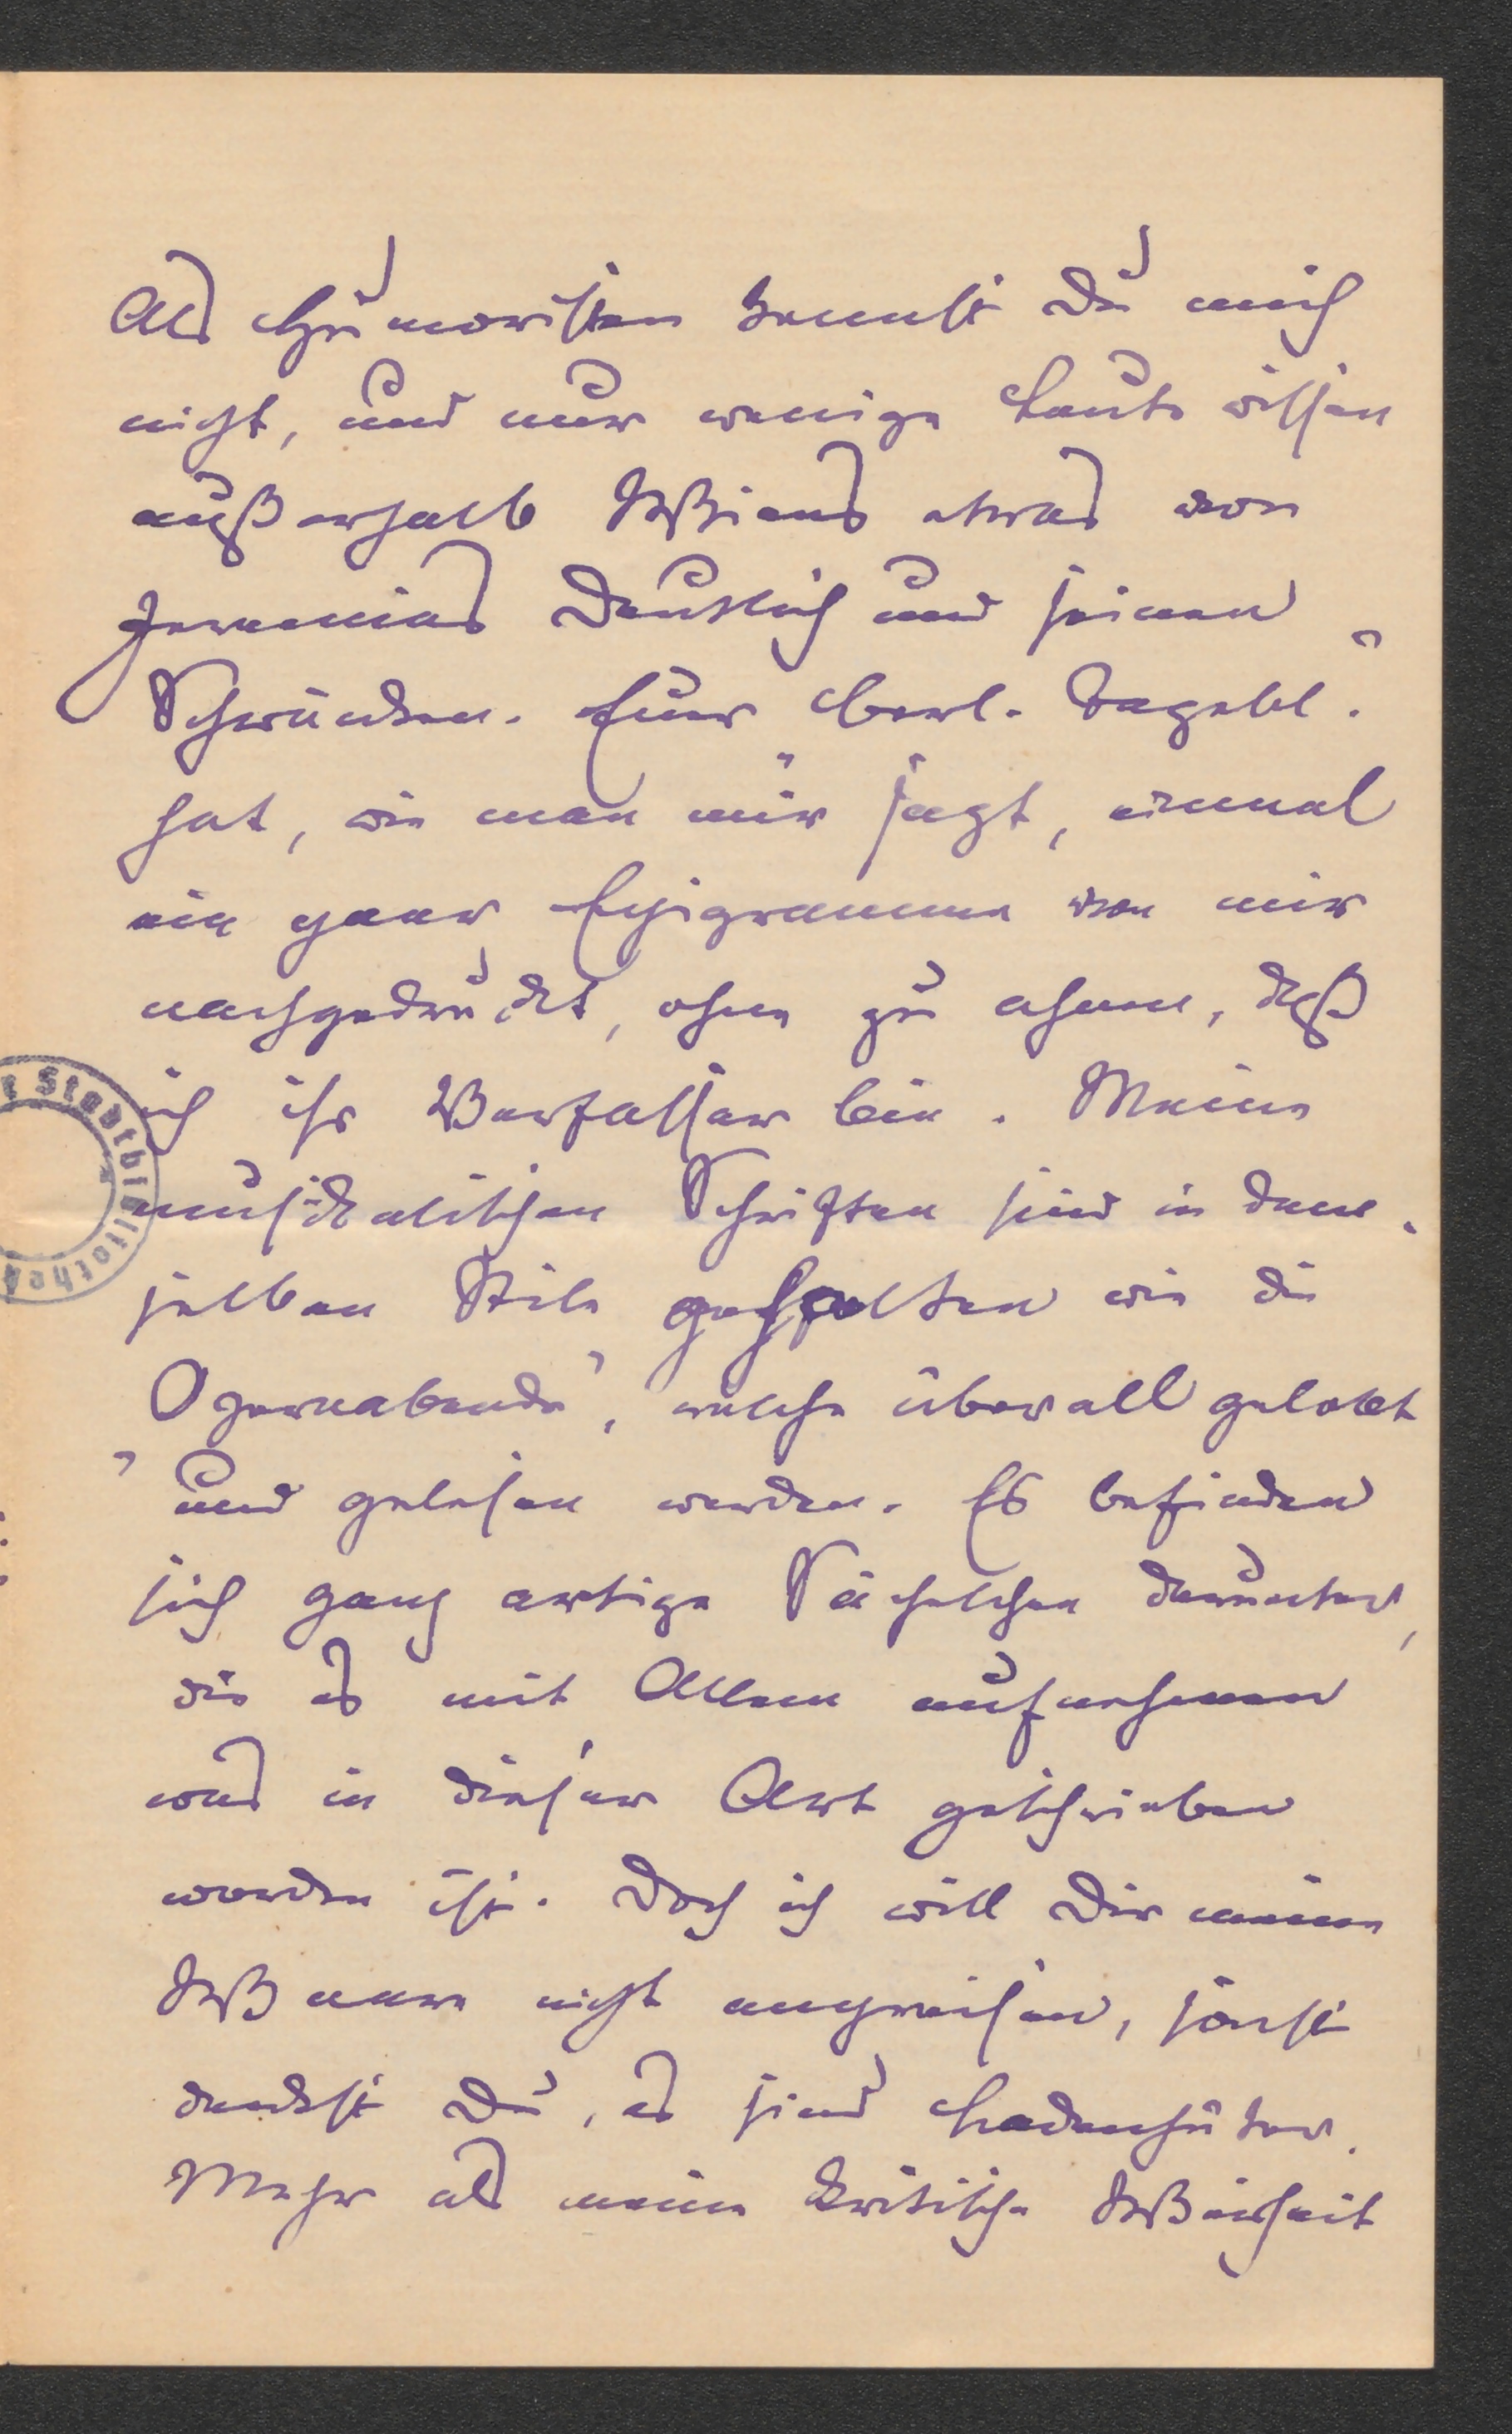 Als Humoristen kennst Du mich
nicht, und nur wenige Leute wissen
außerhalb Wiens etwas von
Jeremias Deutlich und seinen
Schwänken. Euer „Berl. Tagebl."
hat, wie man mir sagt, einmal
ein paar Epigramme von mir
nachgedruckt, ohne zu ahnen, daß
ich ihr Verfasser bin. Meine
musikalischen Schriften sind in dem-
selben Stile gehalten wie die
„Opernabende", welche überall gelobt
und gelesen werden. Es befinden
sich ganz artige Sächelchen darunter,
die es mit Allem aufnehmen
was in dieser Art geschrieben
worden ist. Doch ich will Dir meine
Waare nicht anpreisen, sonst
denkst Du, es sind Ladenhüter.
Mehr als meine kritische Weisheit
r Stadtbibliothek